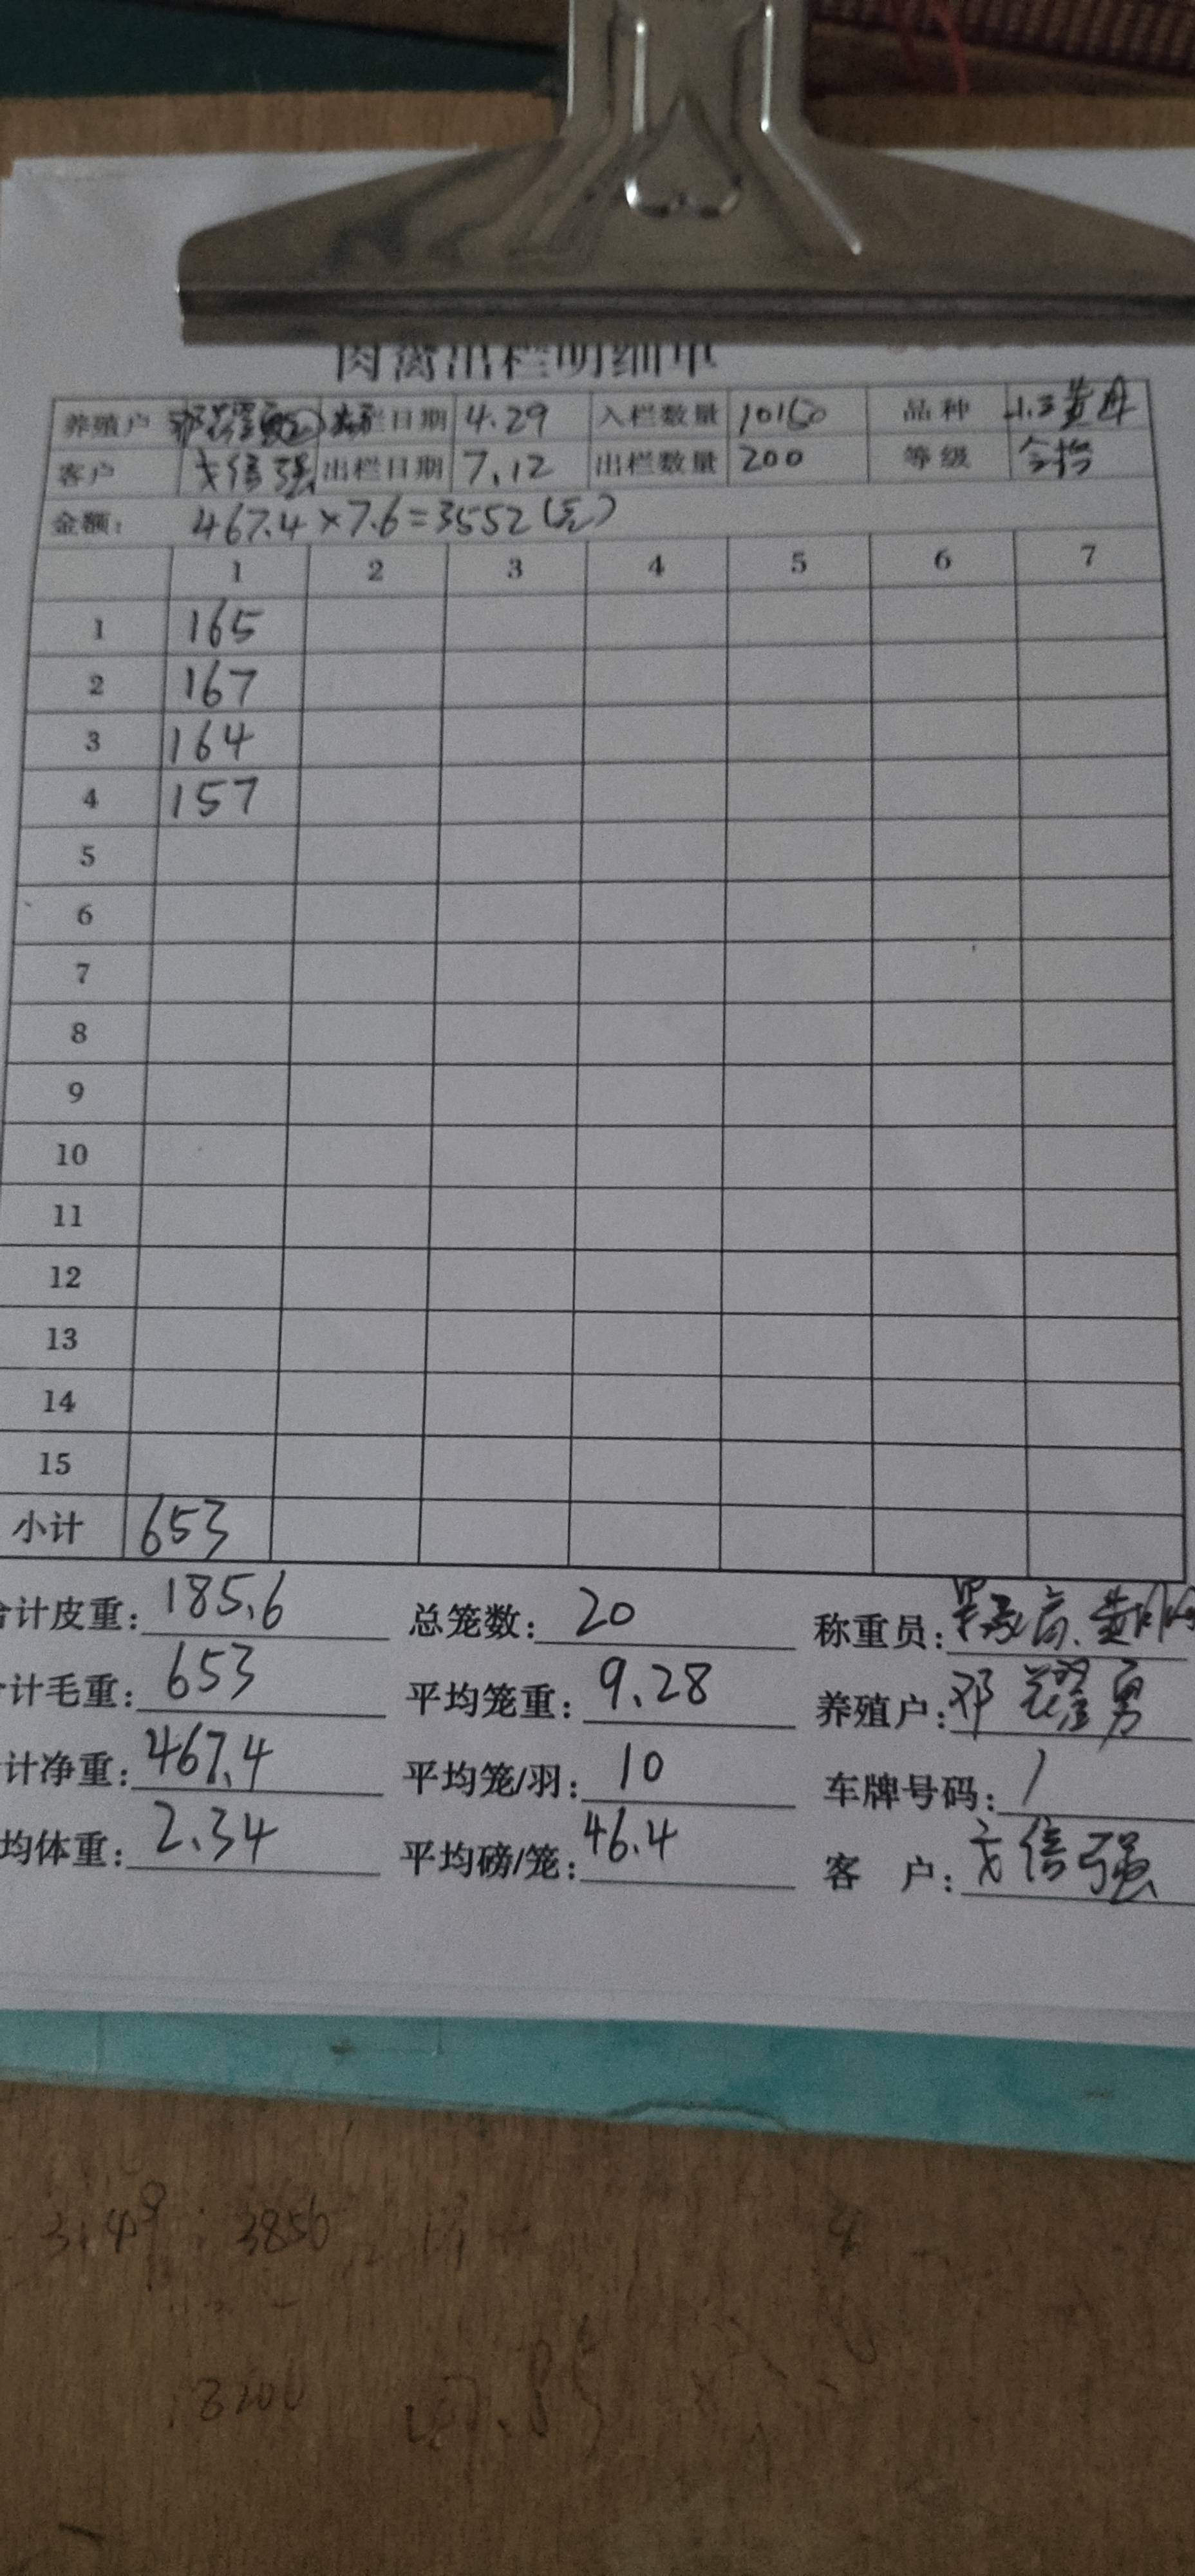 肉禽出栏明细单
养殖户 栏日期 4.29 入栏数量 10150 品种 黄母
客户 信强 出栏日期 7.12 出栏数量 200 等级
金额: 467.4×7.6=3552(元)
1 2 3 4 5 6 7
1 165
2 167
3 164
4 157
5
6
7
8
9
10
11
12
13
14
15
小计 653
计皮重: 185.6 总笼数: 20 称重员:
计毛重: 653 平均笼重: 9.28 养殖户: 邓耀勇
计净重: 467.4 平均笼/羽: 10 车牌号码: /
均体重: 2.34 平均磅/笼: 46.4 客 户: 信强
3850
3200